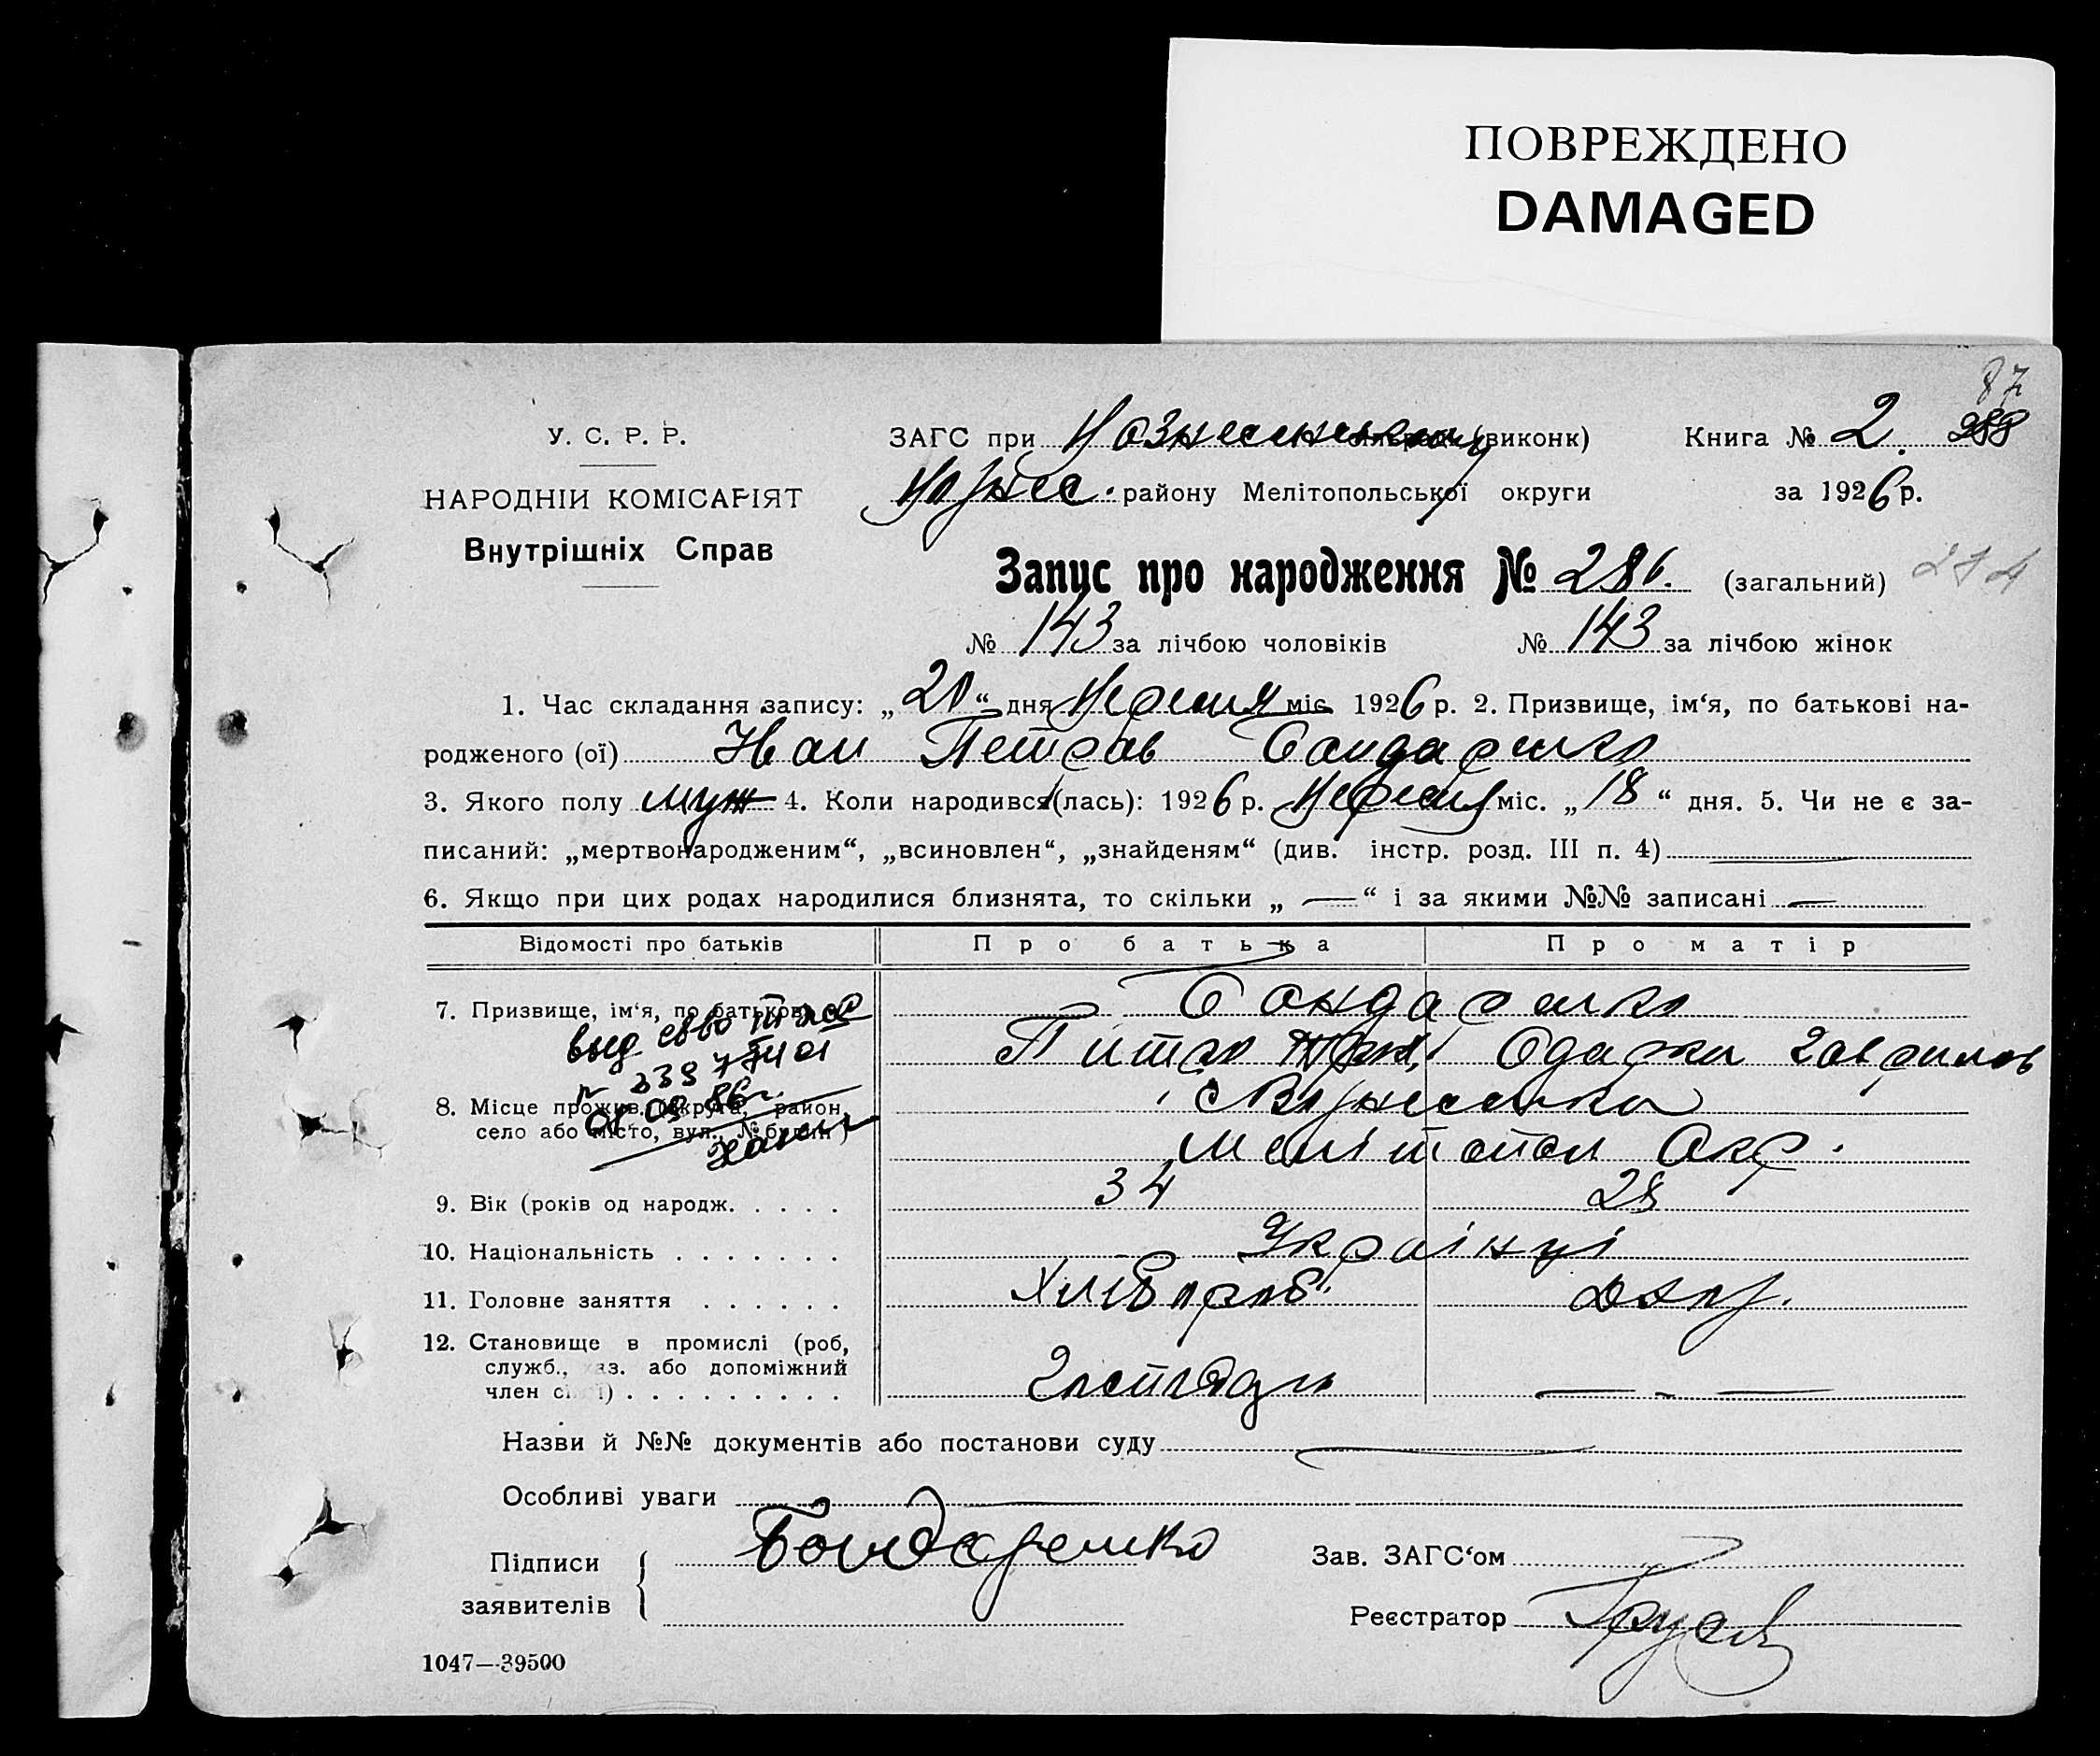 ПОВРЕЖДЕНО
DAMAGED
87
У. С. Р. Р.
НАРОДНІЙ КОМІСАРІЯТ
Внутрішніх Справ
ЗАГС при (виконк) Книга № 2. 288
району Мелітопольської округи за 1926 р.
Запис про народження № 286. (загальний) 274
№ 143 за лічбою чоловіків № 143 за лічбою жінок
1. Час складання запису: „20“ дня міс 1926 р. 2. Призвище, ім‘я, по батькові на-
родженого (ої) Іван Петров Бондаренко
3. Якого полу муж 4. Коли народився (лась): 1926 р. міс. „18“ дня. 5. Чи не є за-
писаний: „мертвонародженим“, „всиновлен“, „знайденям“ (див. інстр. розд. III п. 4) —
6. Якщо при цих родах народилися близнята, то скільки „ — “ і за якими №№ записані —
Відомості про батьків Про батька Про матір
7. Призвище, ім‘я, по батькові Бондаренко
Питро Одарка Гаврилов
выд св во
8. Місце прожив. (округа, район, с Вознесенка
село або місто, вул., № будин.) Мелітопол Окр.
9. Вік (років од народж. . . . . 34 28
10. Національність . . . . . . . Українці
11. Головне заняття . . . . . . Хлібороб.
12. Становище в промислі (роб,
служб., аз. або допоміжний
член сі і) . . . . . . . . . — - —
Назви й №№ документів або постанови суду —
Особливі уваги —
Підписи
заявителів
Бондаренко
Зав. ЗАГС‘ом
Реєстратор
1047—39500